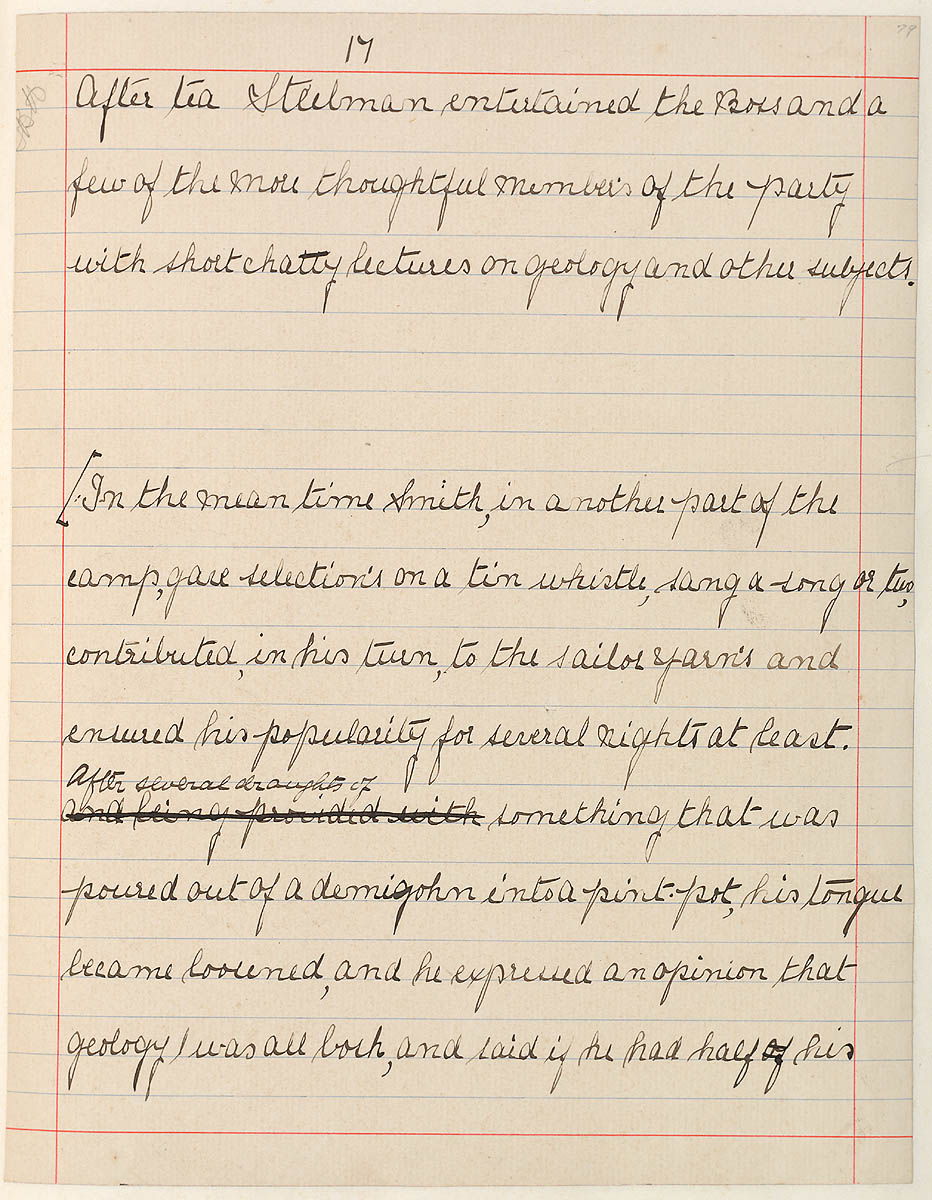 17
79
After tea Steelman entertained the Boss and a
few of the more thoughtful members of the party
with short chatty lectures on geology and other subjects.
[In the mean time Smith, in another part of the
camp, gave selection's on a tin whistle, sang a song or two,
contributed, in his turn, to the sailor yarn's and
ensured his popularity for several nights at least.
After several draughts of
and being provided with something that was
poured out of a demijohn into a pint-pot, his tongue
became loosened, and he expressed an opinion that
geology was all bosh, and said if he had half of his